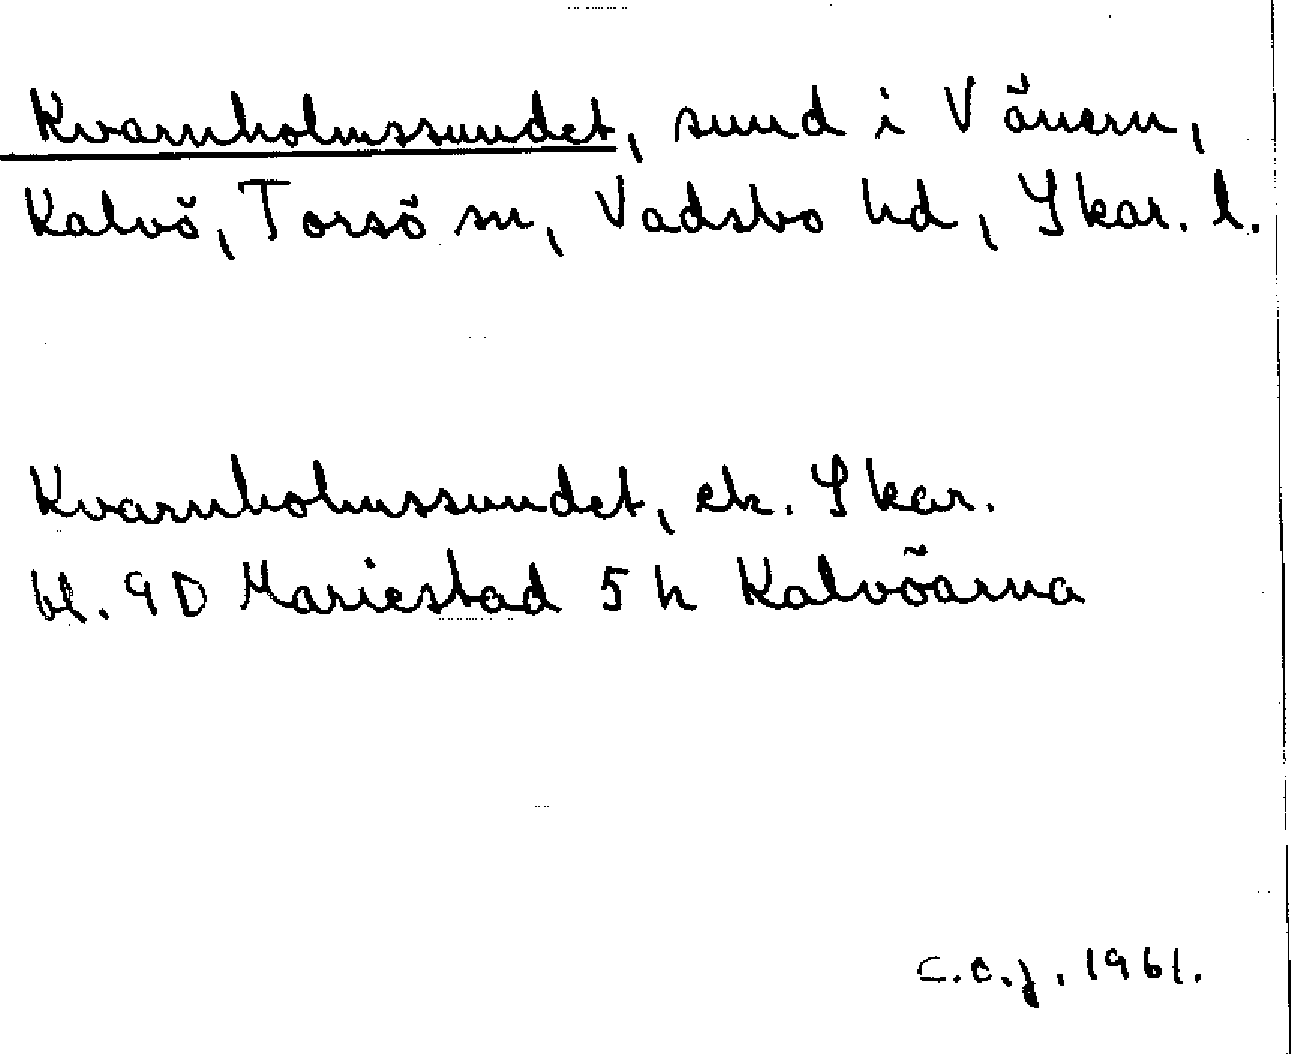 Kvarnholmssundet, sund i Vänern,
Kalvö, Torsö sn, Vadsbo hd, Skar. l.
Kvarnholmssundet, ek. Skar.
bl. 9D Mariestad 5h Kalvöarna
C.C.J. 1961.